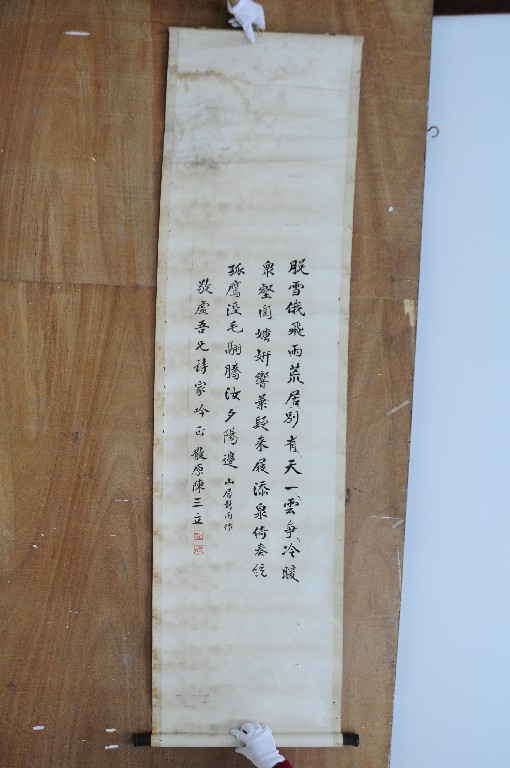 脫雪俄飛雨荒居別有天一雲爭冷暖
眾壑閟媸妍響葉疑來屐添泉倚奏絃
孤鷹溼毛翮騰汝夕陽邊 山居對雨作
敬虛吾兄詩家吟正 散原陳三立